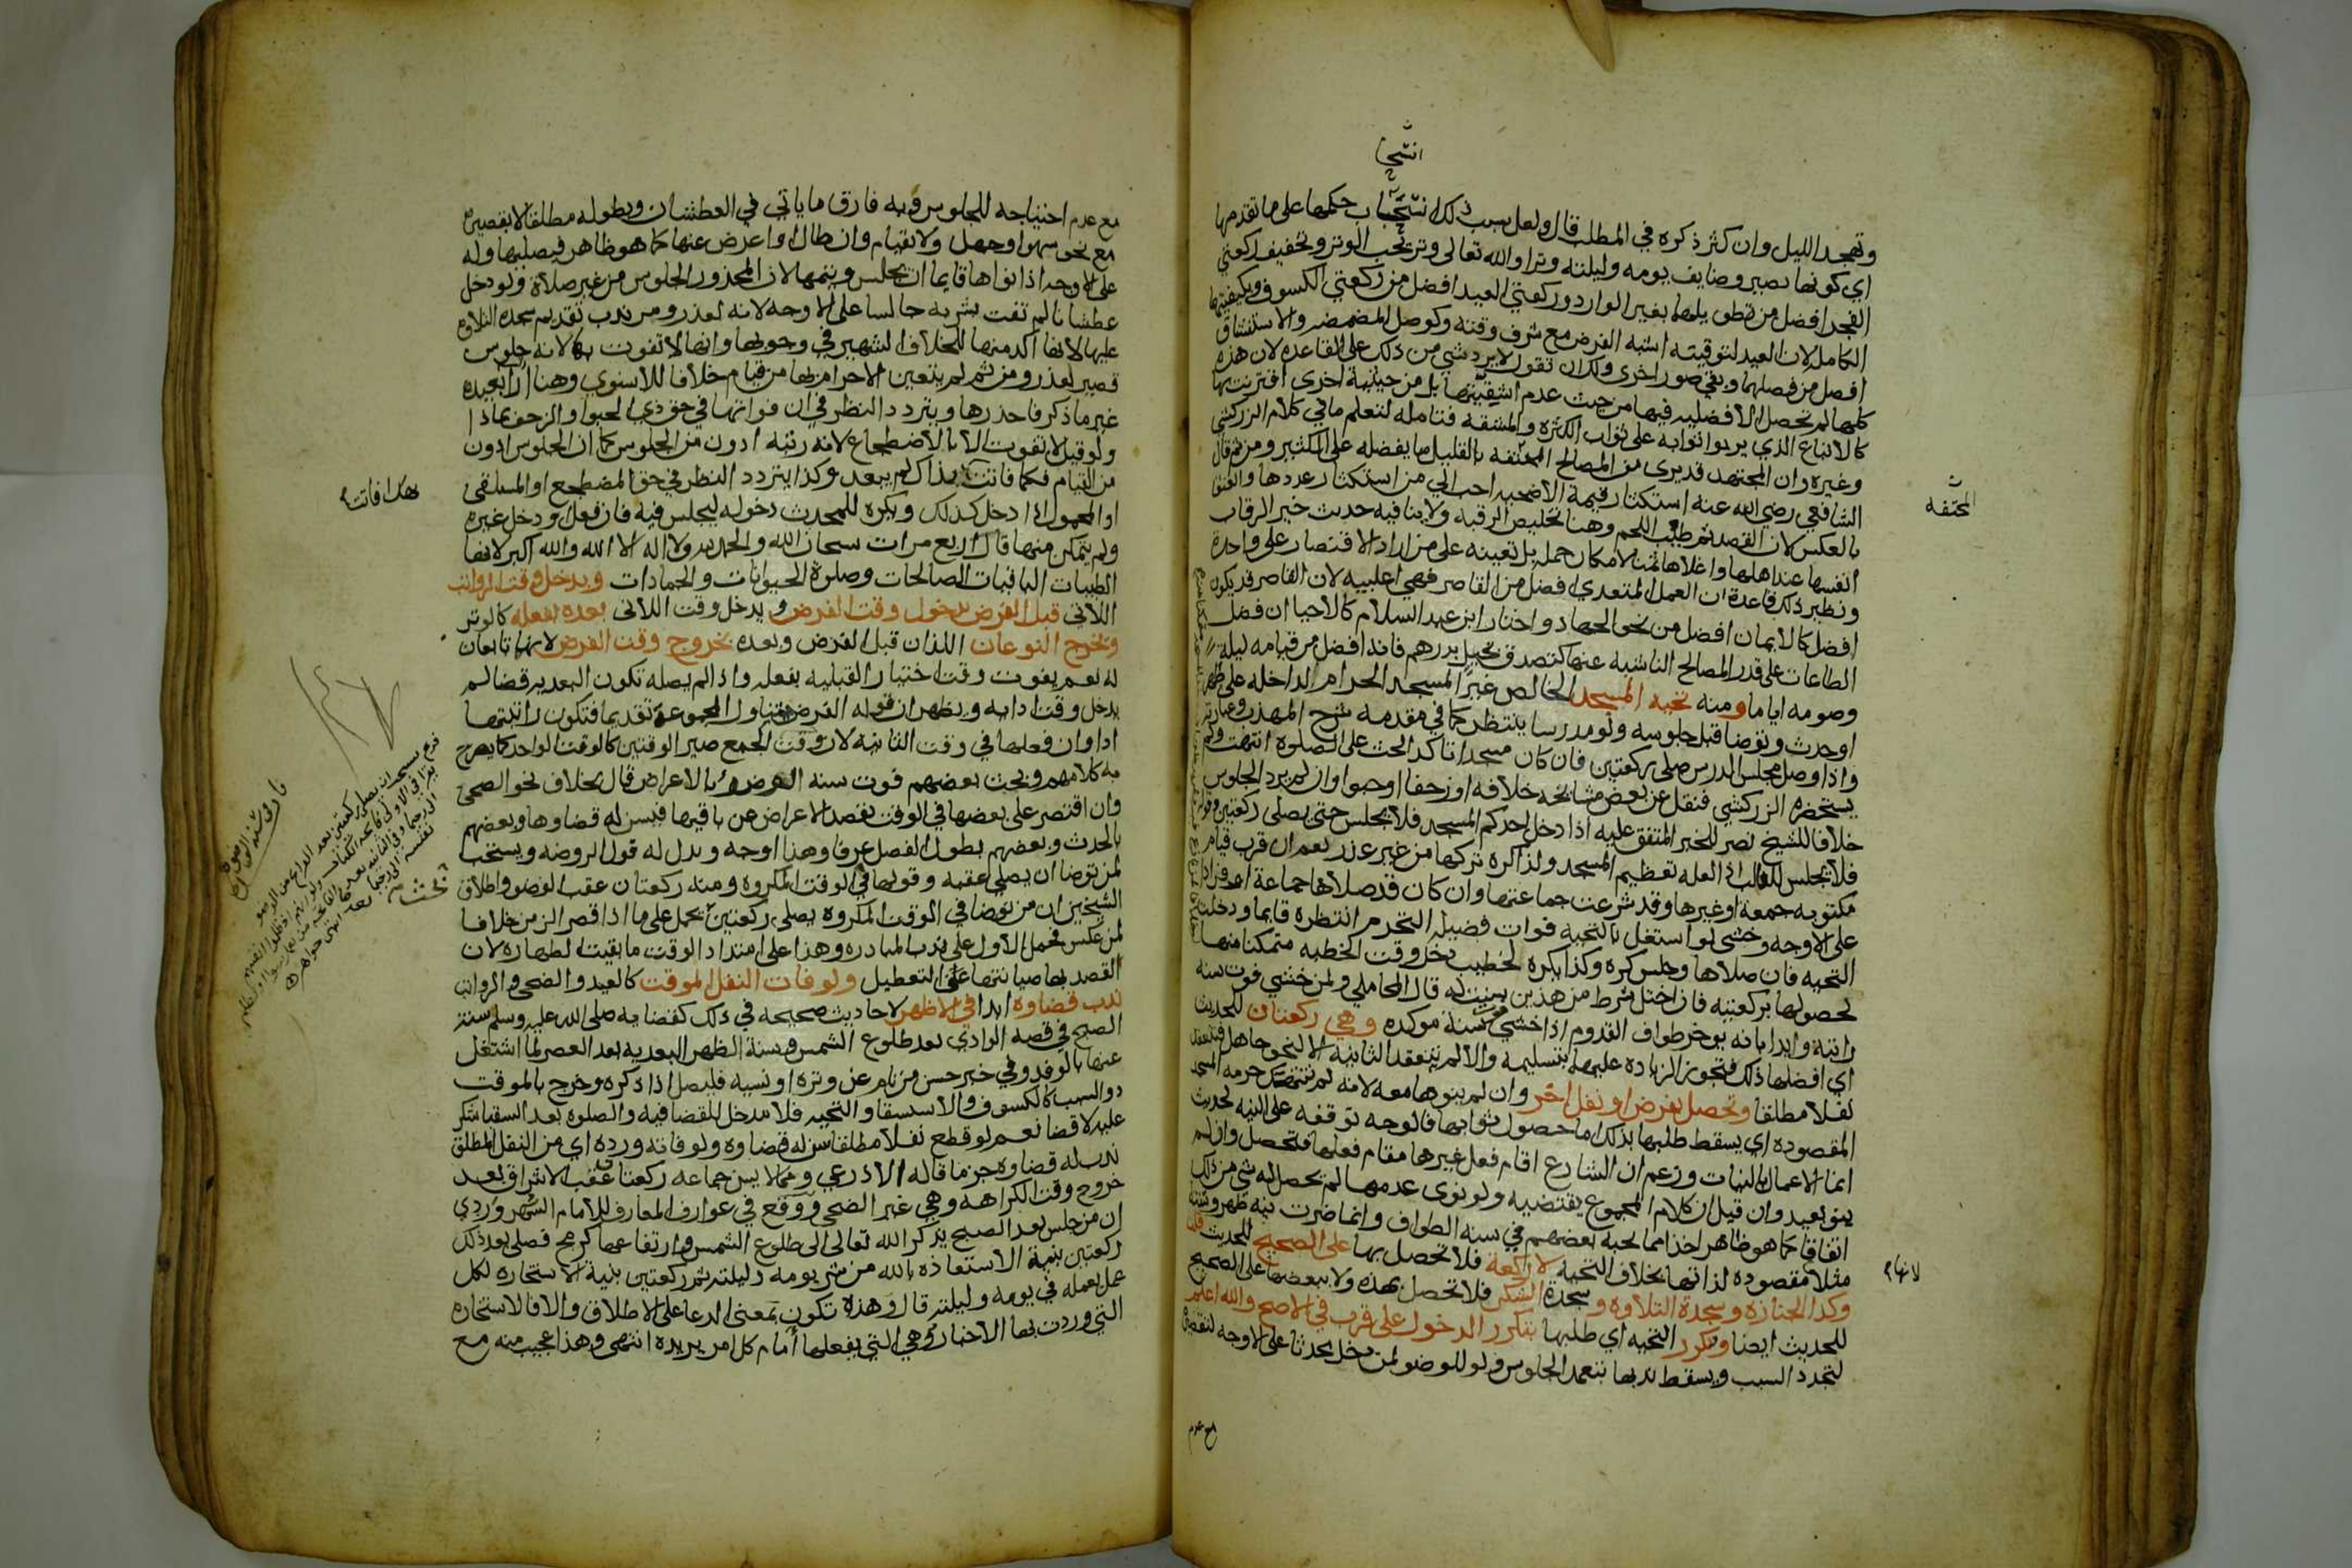 وتهجد الليل وان كثر ذكره في المطلب قال ولعل سبب ذلك انسحاب حكمها على ما تقدمها
اي كونها تصير وضايف يومه وليلته وترا والله تعالى وتر يحب الوتر وتخفيف ركعتي
الفجر افضل من تطويلهما بغير الوارد وركعتي العيد افضل من ركعتي الكسوف بكيفيتها
الكامله لان العيد لتوقيته اشبه الفرض مع شرف وقته وكوصل المضمضه والاستنشاق
افضل من فصلهما وبقي صور اخرى ولك ان تقول لا يرد شي من ذلك على القاعده لان هذه
كلها لم تحصل الافضليه فيها من حيث عدم اشقيتها بل من حيثية اخرى اقترنت بها
كالاتباع الذي يربوا ثوابه على ثواب الكثره والمشقه فتامله لتعلم ما في كلام الزركشي
وغيره وان المجتهد قد يرى من المصالح المحتفه بالقليل ما يفضله على الكثير ومن ثم قال
الشافعي رضي الله عنه استكثار قيمة الاضحيه احب الي من استكثار عددها والعتق
بالعكس لان القصد ثم طيب اللحم وهنا تخليص الرقبه ولا ينافيه حديث خير الرقاب
انفسها عند اهلها واغلاها ثمنا لامكان حمله بل تعينه على من اراد الاقتصار على واحدة
ونظير ذلك قاعدة ان العمل المتعدي افضل من القاصر فهي اغلبيه لان القاصر قد يكون
افضل كالايمان افضل من نحو الجهاد واختار ابن عبد السلام كالاحيا ان فضل
الطاعات على قدر المصالح الناشيه عنها كتصدق بخيل بدرهم فانه افضل من قيامه ليله
وصومه اياما ومنه تحيه المسجد الخالص غير المسجد الحرام لداخله على طهر
او حدث وتوضا قبل جلوسه ولو مدرسا ينتظر كما في مقدمه شرح المهذب وعبارته
واذا وصل مجلس الدرس صلى ركعتين فان كان مسجدا تاكد الحث على الصلوة انتهت ولم
يستحضره الزركشي فنقل عن بعض مشايخه خلافه او زحفا او حبوا او ان لم يرد الجلوس
خلافا للشيخ نصر للخبر المتفق عليه اذا دخل احدكم المسجد فلا يجلس حتى يصلي ركعتين وقوله
فلا يجلس للغالب اذ العله تعظيم المسجد ولذا كره تركها من غير عذر نعم ان قرب قيام
مكتوبه جمعة او غيرها وقد شرعت جماعتها وان كان قد صلاها جماعة او فرادا
على الاوجه وخشي لو اشتغل بالتحية فوات فضيله التحرم انتظره قايما ودخلت
التحيه فان صلاها وجلس كره وكذا يكره لخطيب دخل وقت الخطبه متمكنا منها
لحصولها بركعتيه فان اختل شرط من هذين سنت له قال المحاملي ولمن خشي فوت سنه
راتبة وايد بانه يوخر طواف القدوم اذا خشي فوت سنة موكده وهي ركعتان للحديث
اي افضلها ذلك فتجوز الزياده عليهما بتسليمه والا لم تنعقد الثانيه الا لنحو جاهل فتنعقد
نفلا مطلقا وتحصل بفرض او نفل اخر وان لم ينوها معه لانه لم تنتهك حرمه المسجد
المقصوده اي يسقط طلبها بذلك اما حصول ثوابها فالوجه توقفه على النيه لحديث
انما الاعمال بالنيات وزعم ان الشارع اقام فعل غيرها مقام فعلها فتحصل وان لم
ينو بعيد وان قيل ان كلام المجموع يقتضيه ولو نوى عدمها لم يحصل له شي من ذلك
اتفاقا كما هو ظاهر اخذا مما بحثه بعضهم في سنه الطواف وانما ضرت نيه ظهر وسنته
مثلا مقصوده لذاتها بخلاف التحيه لا ركعة فلا تحصل بها على الصحيح للحديث قلت
وكذا الجنازه وسجدة التلاوه وسجدة الشكر فلا تحصل بهذه ولا ببعضها على الصحيح
للحديث ايضا وتتكرر التحيه اي طلبها بتكرر الدخول على قرب في الاصح والله اعلم
لتجدد السبب ويسقط ندبها بتعمد الجلوس ولو للوضو لمن دخل محدثا على الاوجه لتقصيره
مع عدم
المحتفه
لانها
مع عدم احتياجه للجلوس وبه فارق ما ياتي في العطشان وبطوله مطلقا لا بقصيره
مع نحو سهو او جهل ولا بقيام وان طال او اعرض عنها كما هو ظاهر فيصليها وله
على الاوجه اذا نواها قايما ان يجلس ويتمها لان المحذور الجلوس من غير صلاة ولو دخل
عطشانا لم تفت بشربه جالسا على الاوجه لانه لعذر ومن ندب تقديم سجده التلاوه
عليها لانها اكد منها للخلاف الشهير في وجوبها وانها لا تفوت بها لانه جلوس
قصير لعذر ومن ثم لم يتعين الاحرام بها من قيام خلافا للاسنوي وهنا ارا بعيده
غير ما ذكر فاحذرها ويتردد النظر في ان فواتها في حق ذي الحبو او الزحف بماذا
ولو قيل لا تفوت الا بالاضطجاع لانه رتبه ادون من الجلوس كما ان الجلوس ادون
من القيام فكما فاتت بذاك لم يبعد وكذا يتردد النظر في حق المضطجع او المستلقي
او المحمول اذا دخل كذلك ويكره للمحدث دخوله ليجلس فيه فان فعل او دخل غيره
ولم يتمكن منها قال اربع مرات سبحان الله والحمد لله ولا اله الا الله والله اكبر لانها
الطيبات الباقيات الصالحات وصلوة الحيوانات والجمادات ويدخل وقت الرواتب
اللاتي قبل الفرض بدخول وقت الفرض ويدخل وقت اللاتي بعده بفعله كالوتر
ويخرج النوعان اللذان قبل الفرض وبعده بخروج وقت الفرض لانهما تابعان
له نعم يفوت وقت اختيار القبليه بفعله واذا لم يصله تكون البعديه قضا لم
يدخل وقت ادايه ويظهر ان قوله الفرض يتناول المجموعة تقديما فتكون راتبتها
ادا وان فعلها في وقت الثانيه لان وقت الجمع صير الوقتين كالوقت الواحد كما يصرح
به كلامهم وبحث بعضهم فوت سنه الوضوء بالاعراض قال بخلاف نحو الضحى
وان اقتصر على بعضها في الوقت بقصد الاعراض عن باقيها فيسن له قضاوها وبعضهم
بالحدث وبعضهم بطول الفصل عرفا وهذا اوجه ويدل له قول الروضه ويستحب
لمن توضا ان يصلي عقبه وقولها في الوقت المكروه ومنه ركعتان عقب الوضو واطلاق
الشيخين ان من توضا في الوقت المكروه يصلي ركعتين يحمل على ما اذا قصر الزمن خلافا
لمن عكس فحمل الاول على ندب المبادره وهذا على امتداد الوقت ما بقيت الطهاره لان
القصد بها صيانتها عن التعطيل ولو فات النفل الموقت كالعيد والضحى والرواتب
ندب قضاوه ابدا في الاظهر لاحاديث صحيحه في ذلك كقضايه صلى الله عليه وسلم سنة
الصبح في قصه الوادي بعد طلوع الشمس وسنة الظهر البعديه بعد العصر لما اشتغل
عنها بالوفد وفي خبر حسن من نام عن وتره او نسيه فليصل اذا ذكره وخرج بالموقت
ذو السبب كالكسوف والاستسقا والتحيه فلا مدخل للقضا فيه والصلوه بعد السقيا شكر
عليه لا قضا نعم لو قطع نفلا مطلقا سن له قضاوه ولو فاته ورده اي من النفل المطلق
ندب له قضاوه جزما قاله الاذرعي ومما لا يسن جماعه ركعتان عقب الاشراق بعد
خروج وقت الكراهه وهي غير الضحى ووقع في عوارف المعارف للامام السهروردي
ان من جلس بعد الصبح يذكر الله تعالى الى طلوع الشمس وارتفاعها كرمح فصلى بعد ذلك
ركعتين بنية الاستعاذه بالله من شر يومه وليلته ثم ركعتين بنية الاستخاره لكل
عمل يعمله في يومه وليلته قال وهذه تكون بمعنى الدعا على الاطلاق والا فالاستخاره
التي وردت بها الاخبار هي التي يفعلها امام كل امر يريده انتهى وهذا عجيب منه مع